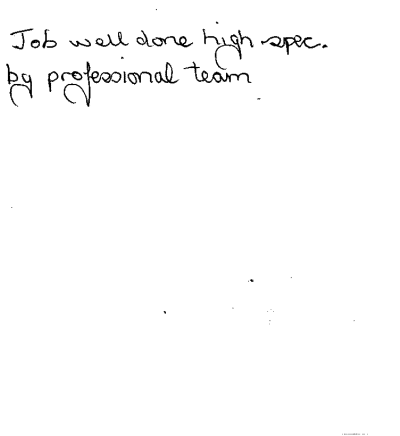 Job well done high spec.
by professional team